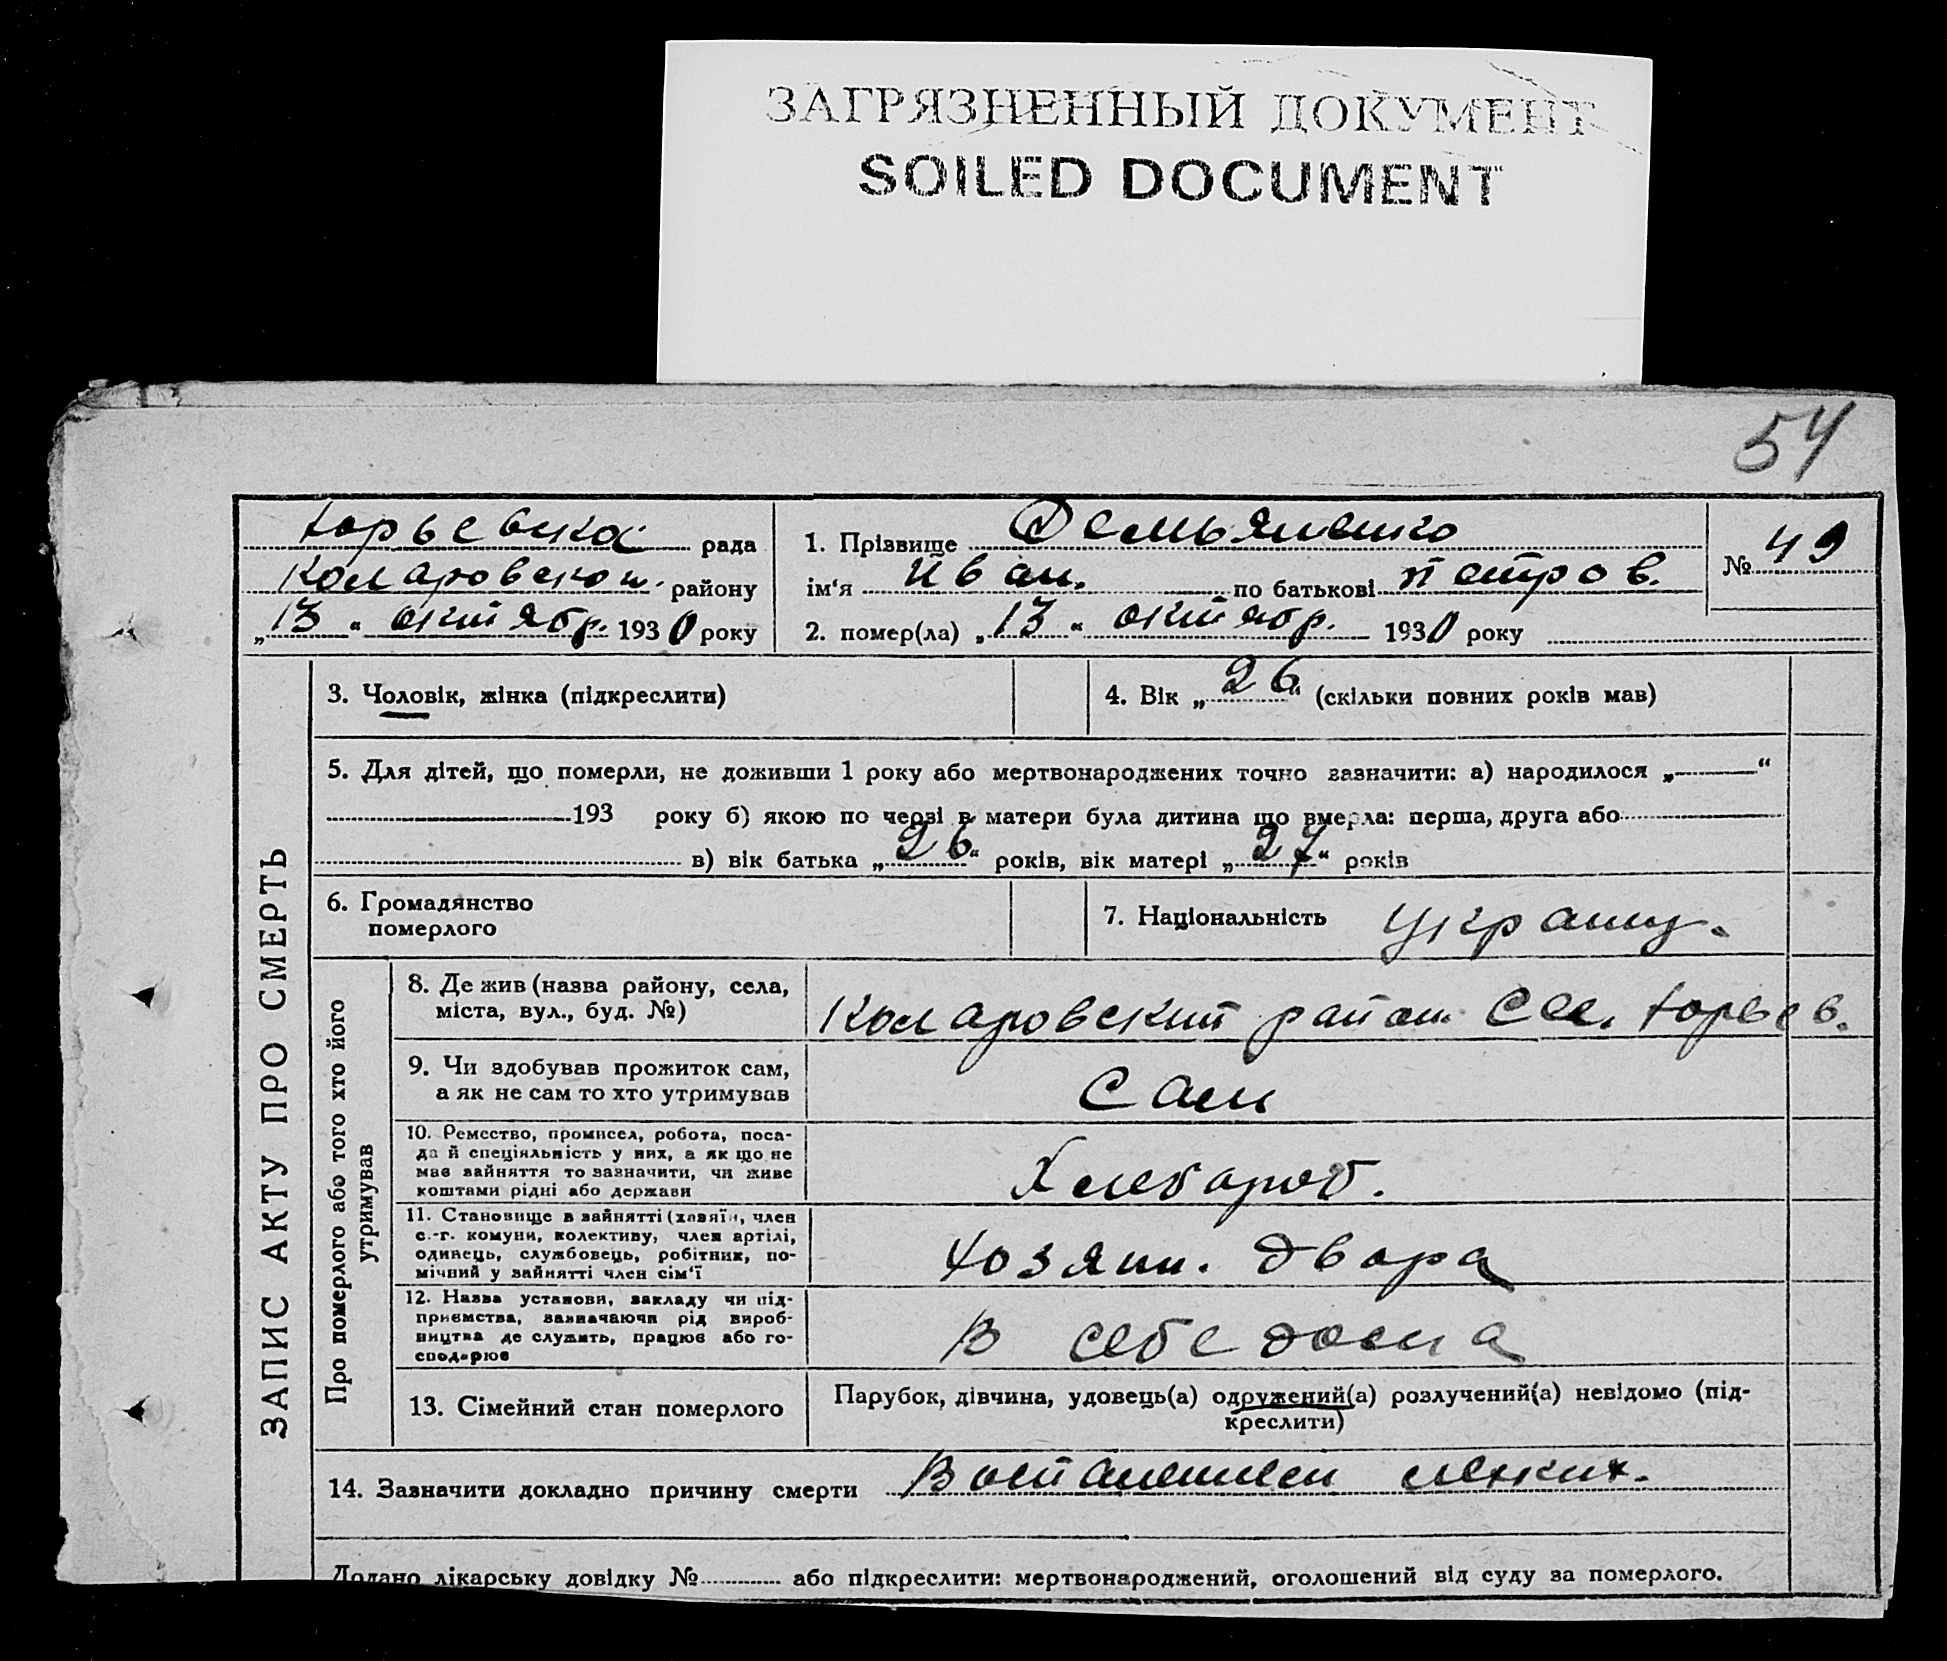 ЗАГРЯЗНЕННЫЙ ДОКУМЕНТ
SOILED DOCUMENT
54
ЗАПИС АКТУ ПРО СМЕРТЬ
Юрьевска рада
Коларовском. району
„13“ октябр. 1930 року
1. Прізвище Демьяненко
ім‘я Иван. по батькові Петров.
2. помер(ла) „13“ октябр. 1930 року
№ 49
3. Чоловік, жінка (підкреслити)
4. Вік „26“ (скільки повних років мав)
5. Для дітей, що померли, не доживши 1 року або мертвонароджених точно зазначити: а) народилося „—“
193 року б) якою по черзі в матери була дитина що вмерла: перша, друга або
в) вік батька „26“ років, вік матері „27“ років
6. Громадянство
померлого
7. Національність Украин.
Про померлого або того хто його
утримував
8. Де жив (назва району, села,
міста, вул., буд. №)
Коларовский район Сел. Юрьев.
9. Чи здобував прожиток сам,
а як не сам то хто утримував
Сам
10. Ремество, промисел, робота, поса-
да й спеціяльність у них, а як що не
має зайняття то зазначити, чи живе
коштами рідні або держави
Хлебароб.
11. Становище в зайнятті (хазяїн, член
с.-г. комуни, колективу, член артілі,
одинець, службовець, робітник, по-
мічний у зайнятті член сім‘ї
Хозяин. двора
12. Назва установи, закладу чи під-
приємства, зазначаючи рід вироб-
ництва де служить, працює або го-
сподарює
В себе дома
13. Сімейний стан померлого
Парубок, дівчина, удовець(а) одружений(а) розлучений(а) невідомо (під-
креслити)
14. Зазначити докладно причину смерти
легких.
Додано лікарську довідку № або підкреслити: мертвонароджений, оголошений від суду за померлого.